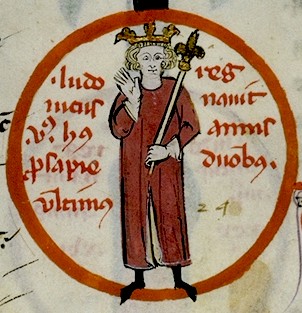 ·ludo
uicus
vꝰ. hꝰ
ꝓsapie
vltimꝰ
reg
nauit
annis
duobꝰ.
24